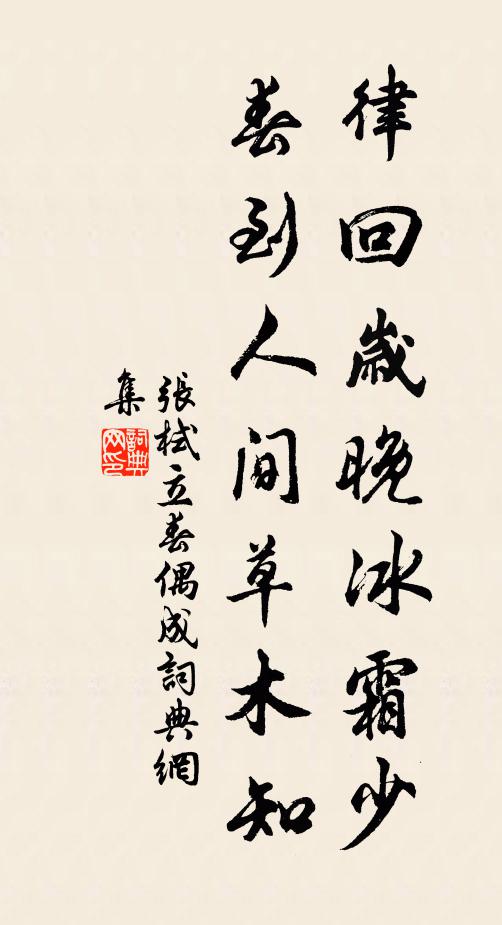 律回歲晚冰霜少
春到人間草木知
張栻立春偶成詞典網
集
詞典网印